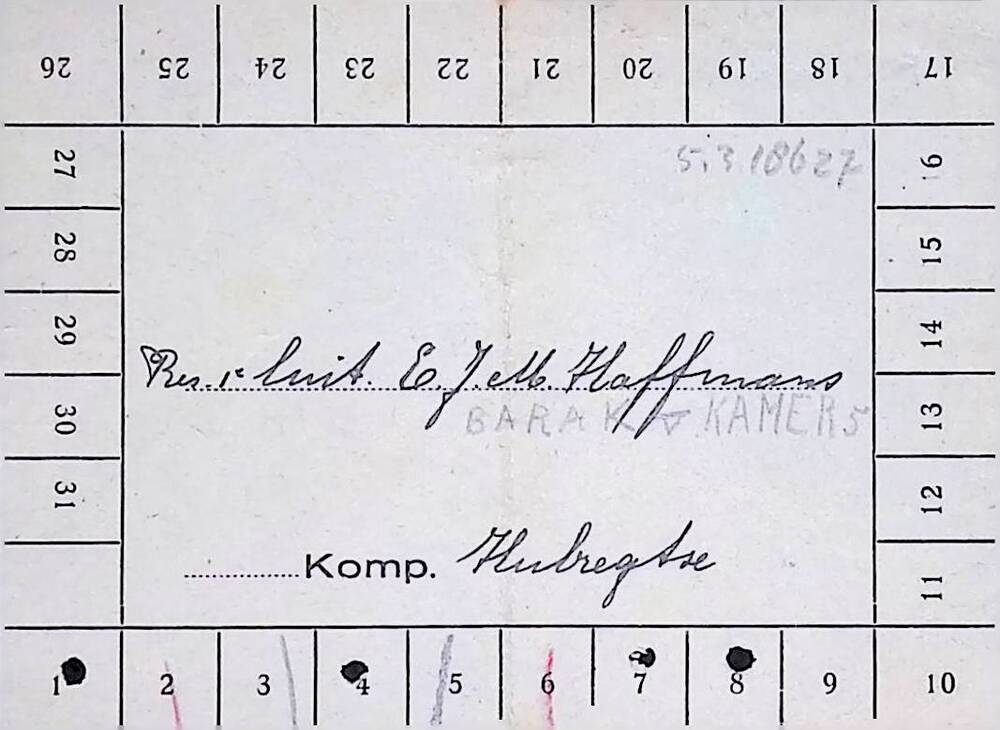 26 25 24 23 22 21 20 19 18 17
27 16
5.3.18627
28 15
29 14
Res. 1e luit. E.J.M. Haffmans
30 13
BARAK V KAMER 5
31 12
Komp. Hubregtse
11
1 2 3 4 5 6 7 8 9 10